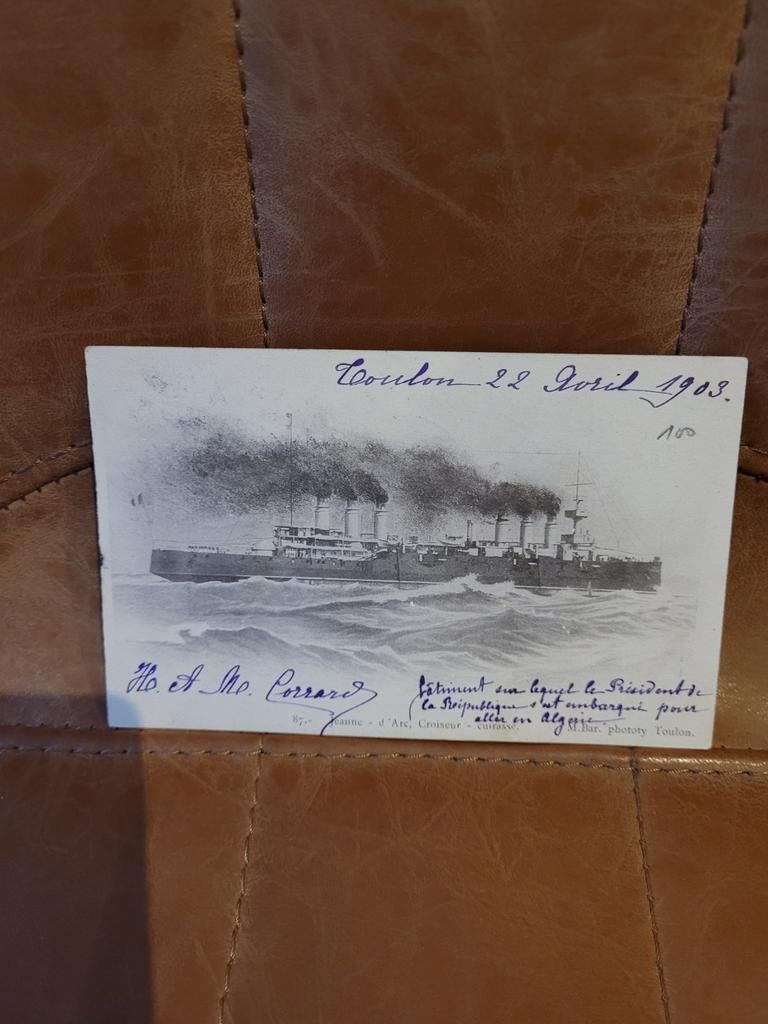 Toulon 22 Avril 1903.
100
H. et M. Corrard
bâtiment sur lequel le Président de
la République s'est embarqué pour
aller en Algérie.
87.- Jeanne - d'Arc, Croiseur - cuirassé.
M. Bar, phototy Toulon.